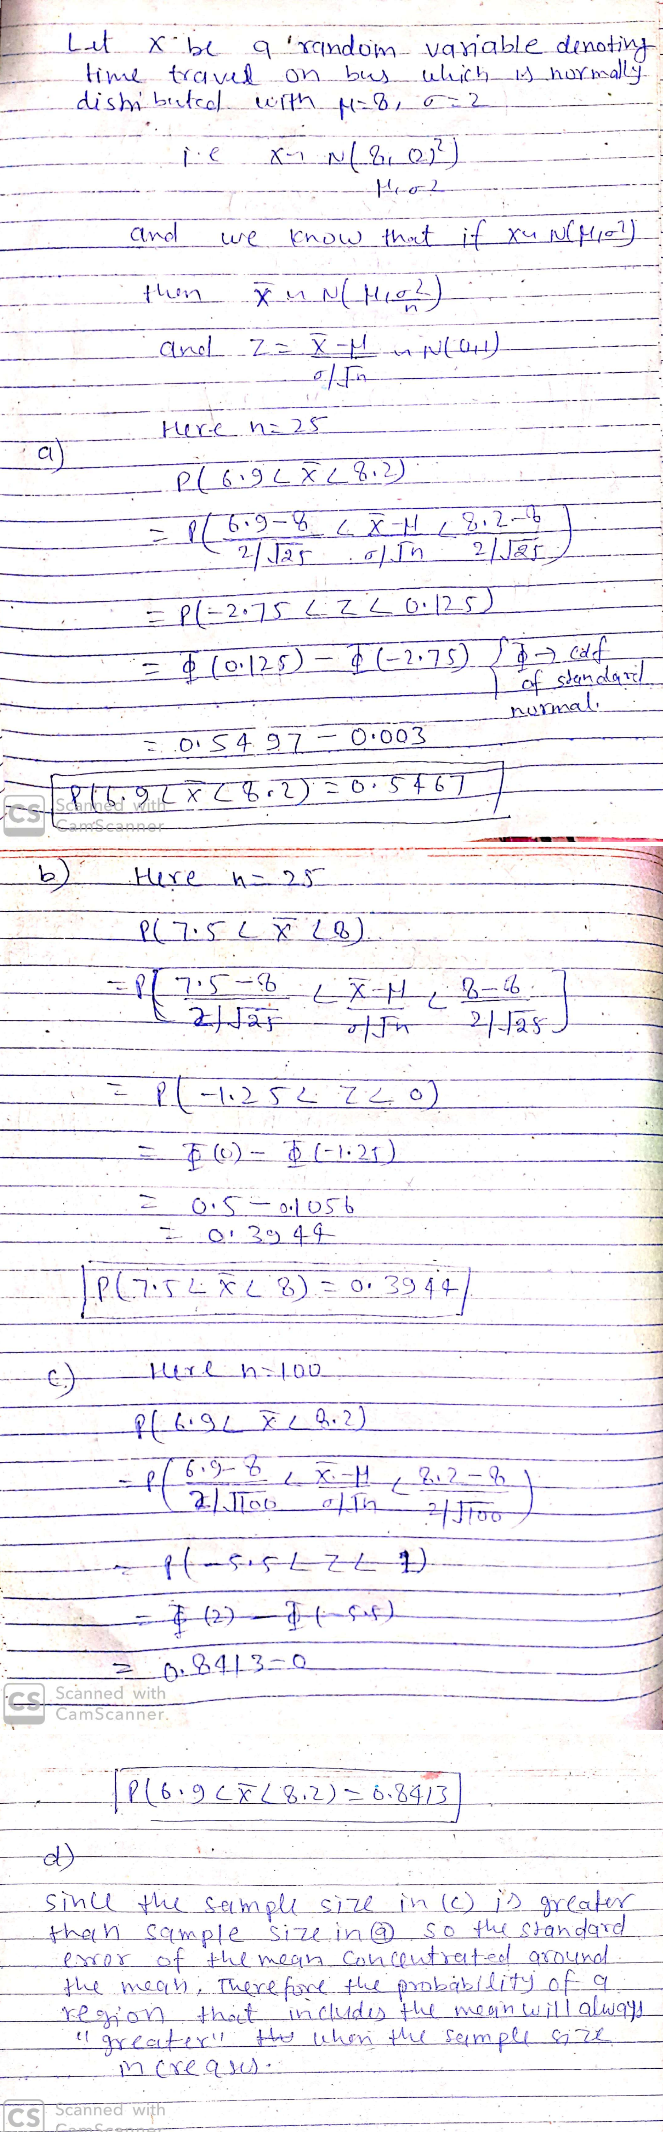 Let x be a random variable denoting
time travel on bus which is normally
distributed with μ=8, σ=2
i.e x~ N(8, (2)²)
μ, σ²
and we know that if x~ N(μ,σ²)
then x̄ ~ N(μ, σ²/n)
and Z = (x̄-μ)/(σ/√n) ~ N(0,1)
Here n=25
a)
P(6.9 < x̄ < 8.2)
= P( (6.9-8)/(2/√25) < (x̄-μ)/(σ/√n) < (8.2-8)/(2/√25) )
= P(-2.75 < Z < 0.125)
= Φ(0.125) - Φ(-2.75) { Φ → cdf
of standard
normal.
= 0.5497 - 0.003
P(6.9 < x̄ < 8.2) = 0.5467
CS Scanned with
CamScanner
b) Here n=25
P(7.5 < x̄ < 8)
= P[ (7.5-8)/(2/√25) < (x̄-μ)/(σ/√n) < (8-8)/(2/√25) ]
= P(-1.25 < Z < 0)
= Φ(0) - Φ(-1.25)
= 0.5 - 0.1056
= 0.3944
P(7.5 < x̄ < 8) = 0.3944
c.) Here n=100
P(6.9 < x̄ < 8.2)
= P( (6.9-8)/(2/√100) < (x̄-μ)/(σ/√n) < (8.2-8)/(2/√100) )
= P(-5.5 < Z < 1)
= Φ(2) - Φ(-5.5)
= 0.8413-0
CS Scanned with
CamScanner.
P(6.9 < x̄ < 8.2) = 0.8413
d)
since the sample size in (c) is greater
than sample size in (a) so the standard
error of the mean concentrated around
the mean, Therefore the probability of a
region that includes the mean will always
"greater" when the sample size
increases.
CS Scanned with
CamScanner